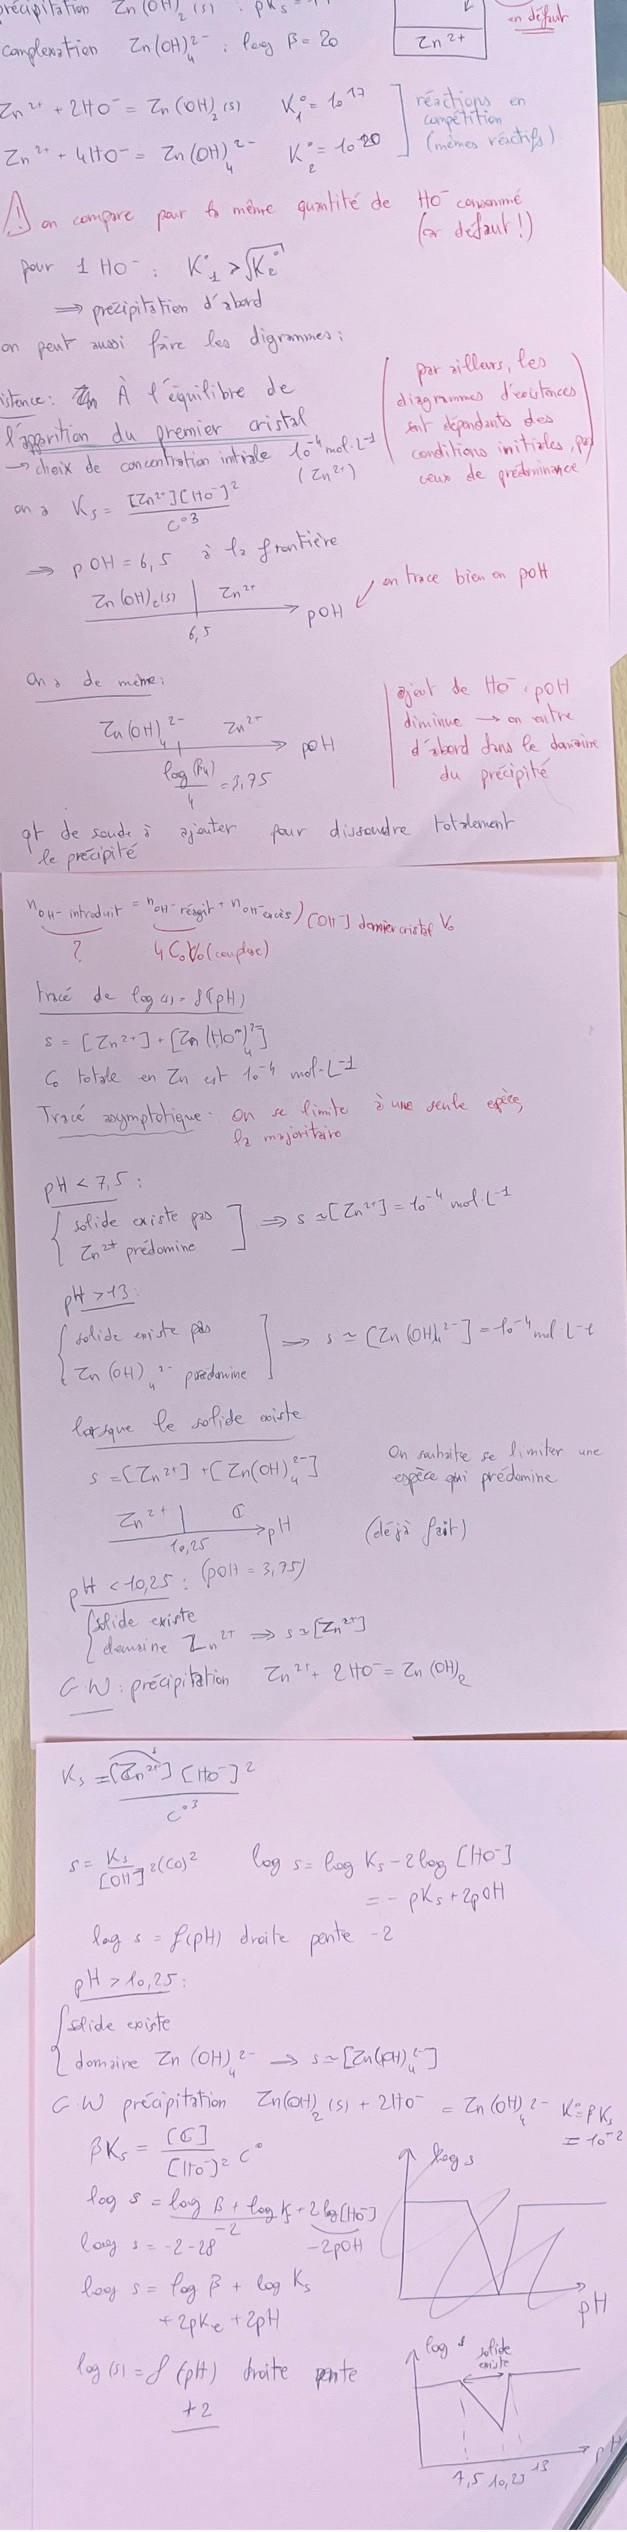 précipitation Zn(OH)₂(s) : pKs =
complexation Zn(OH)₄²⁻ : log β = 20
Zn²⁺
en défaut
Zn²⁺ + 2HO⁻ = Zn(OH)₂(s) K₁° = 10¹⁷
Zn²⁺ + 4HO⁻ = Zn(OH)₄²⁻ K₂° = 10²⁰
réactions en
compétition
(mêmes réactifs)
⚠ on compare pour la même quantité de HO⁻ consommé
(car défaut !)
pour 1 HO⁻ : K₁° > √K₂°
⟹ précipitation d'abord
on peut aussi faire les digrammes :
istence : À l'équilibre de
l'apparition du premier cristal
→ choix de concentration intiale 10⁻⁴ mol.L⁻¹
(Zn²⁺)
(par ailleurs, les
diagrammes d'existences
sont dépendants des
conditions initiales, pas
ceux de prédominance)
on a Ks = [Zn²⁺][HO⁻]² / c°³
⟹ pOH = 6,5 à la frontière
Zn(OH)₂(s) | Zn²⁺ → pOH
6,5
on trace bien en pOH
On a de même :
Zn(OH)₄²⁻ | Zn²⁺ → pOH
log(β₄)/4 = 3,75
ajout de HO⁻, pOH
diminue → on entre
d'abord dans le domaine
du précipité
qt de soude à ajouter pour dissoudre totalement
le précipité
nOH⁻ introduit = nOH⁻ réagit + nOH⁻ excès) [OH⁻] dernier cristal V₀
? 4C₀V₀ (complexe)
Tracé de log(s) = f(pH)
s = [Zn²⁺] + [Zn(HO)₄²⁻]
C₀ totale en Zn est 10⁻⁴ mol.L⁻¹
Tracé asymptotique : On se limite à une seule espèce,
la majoritaire
pH < 7,5 :
{ solide existe pas
Zn²⁺ prédomine ] ⟹ s ≃ [Zn²⁺] = 10⁻⁴ mol.L⁻¹
pH > 13 :
{ solide existe pas
Zn(OH)₄²⁻ prédomine ] ⟹ s ≃ [Zn(OH)₄²⁻] = 10⁻⁴ mol L⁻¹
lorsque le solide existe
s = [Zn²⁺] + [Zn(OH)₄²⁻]
On souhaite se limiter une
espèce qui prédomine
Zn²⁺ | C → pH
10,25
(déjà fait)
pH < 10,25 : (pOH = 3,75)
{ solide existe
domaine Zn²⁺ ⟹ s ≃ [Zn²⁺]
GW : précipitation Zn²⁺ + 2HO⁻ = Zn(OH)₂
Ks = [Zn²⁺][HO⁻]² / c°³
s
s = Ks/[OH]² (C°)² log s = log Ks - 2log [HO⁻]
= - pKs + 2pOH
log s = f(pH) droite pente -2
pH > 10,25 :
{ solide existe
domaine Zn(OH)₄²⁻ → s ≃ [Zn(OH)₄²⁻]
GW précipitation Zn(OH)₂(s) + 2HO⁻ = Zn(OH)₄²⁻ K° = βKs
= 10⁻²
βKs = [C]/[HO⁻]² c°
log s = log β + log Ks + 2log[HO⁻]
-2 -2pOH
log s = -2-28
log s = log β + log Ks
+ 2pKe + 2pH
log(s) = f(pH) droite pente
+2
log s
pH
log s
solide
existe
pH
7,5 10,25 13